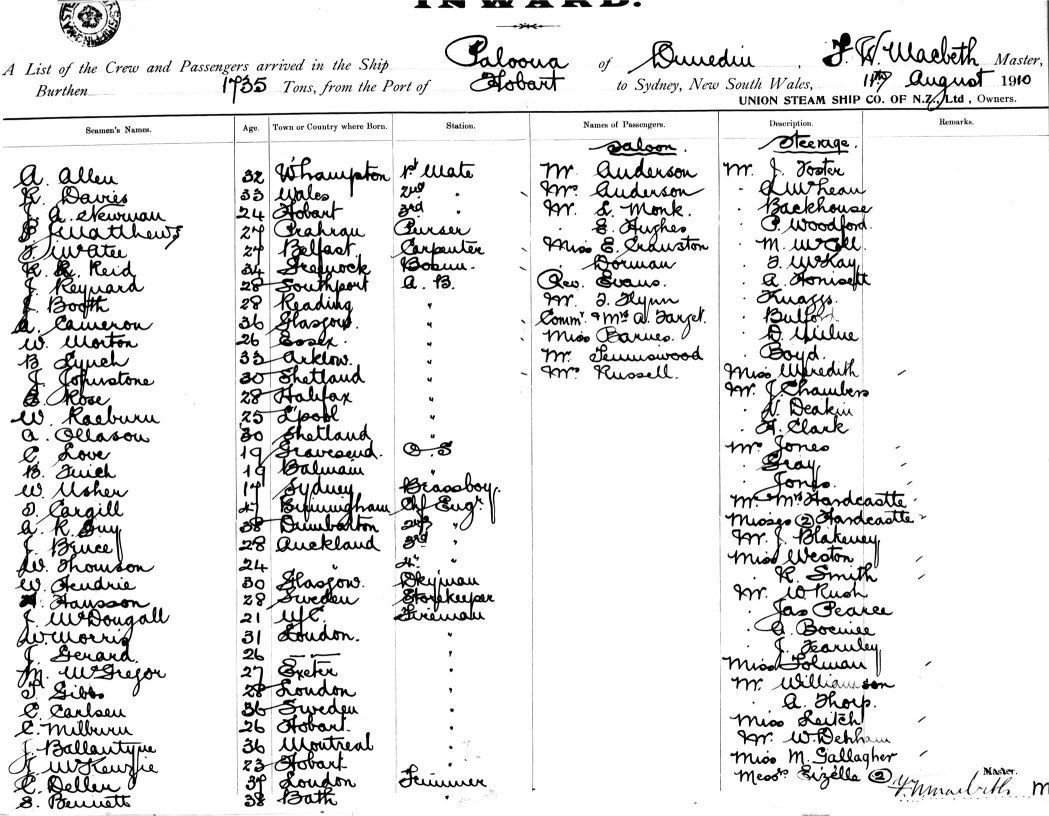 INWARD.
A List of the Crew and Passengers arrived in the Ship Paloona of Dunedin, F. W. Macbeth Master,
Burthen 1735 Tons, from the Port of Hobart to Sydney, New South Wales, 11th August 1910
UNION STEAM SHIP CO. OF N.Z., Ltd, Owners.
Seamen's Names. Age. Town or Country where Born. Station. Names of Passengers. Description. Remarks.
Saloon. Steerage.
A. Allen 32 Whampton 1st Mate Mr Anderson Mr J. Foster
R. Davies 33 Wales 2nd " Mrs Anderson
J. A. Newman 24 Hobart 3rd " Mr L. Monk. Backhouse
P. J. Matthews 27 Prahran Purser E. Hughes P. Woodford.
27 Belfast Carpenter Miss E. Cranston M. McCall
R. R. Reid 34 Greenock Bosun. Dorman J. McKay
J. Reynard 28 Southport A. B. Rev. Evans. A. Honisett
J. Booth 28 Reading " Mr. J. Flynn Knaggs
A. Cameron 36 Glasgow. " Commr. & Mrs A. Target.
W. Morton 26 Essex. " Miss Barnes D. Milne
B. Lynch 33 Arklow. " Mr. Tenniswood Boyd.
J. Johnstone 30 Shetland " Mrs Russell. Miss Meredith
E. Rose 28 Halifax " Mr. J. Chambers
W. Raeburn 25 L'pool " Deakin
A. Ollason 30 Shetland " Clark
C. Love 19 Gravesend. O. S Mrs Jones
19 Balmain " Gray
W. Usher 17 Sydney Brassboy. Jones.
Cargill 47 Birmingham Chf Engr. Mr. Mrs Hardcastle
A. R. Guy 38 Dumbarton 2nd " Misses (2) Hardcastle
J. Bruce 28 Auckland 3rd " Mr. J. Blakeney
W. Thomson 24 " 4th " Miss Weston.
W. Hendrie 30 Glasgow. Dkyman R. Smith
H. Hansson 28 Sweden Storekeeper Mr. W Rush
J. McDougall 21 Fireman Jas Pearce
W. Morris 31 London. "
J. Gerard. 26 — " J. Fearnley
M. McGregor 27 Exeter " Miss Tolman
T. Gibbs 28 London " Mr. Williamson
C. Carlsen 36 Sweden " A. Thorp.
C. Milburn 26 Hobart. " Miss Leitch
J. Ballantyne 36 Montreal " Mr. W. Denham
J. McKenzie 23 Hobart " Miss M. Gallagher
C. Deller 37 London Trimmer Messrs Eizelle (2)
S. Bennett 38 Bath "
Master.